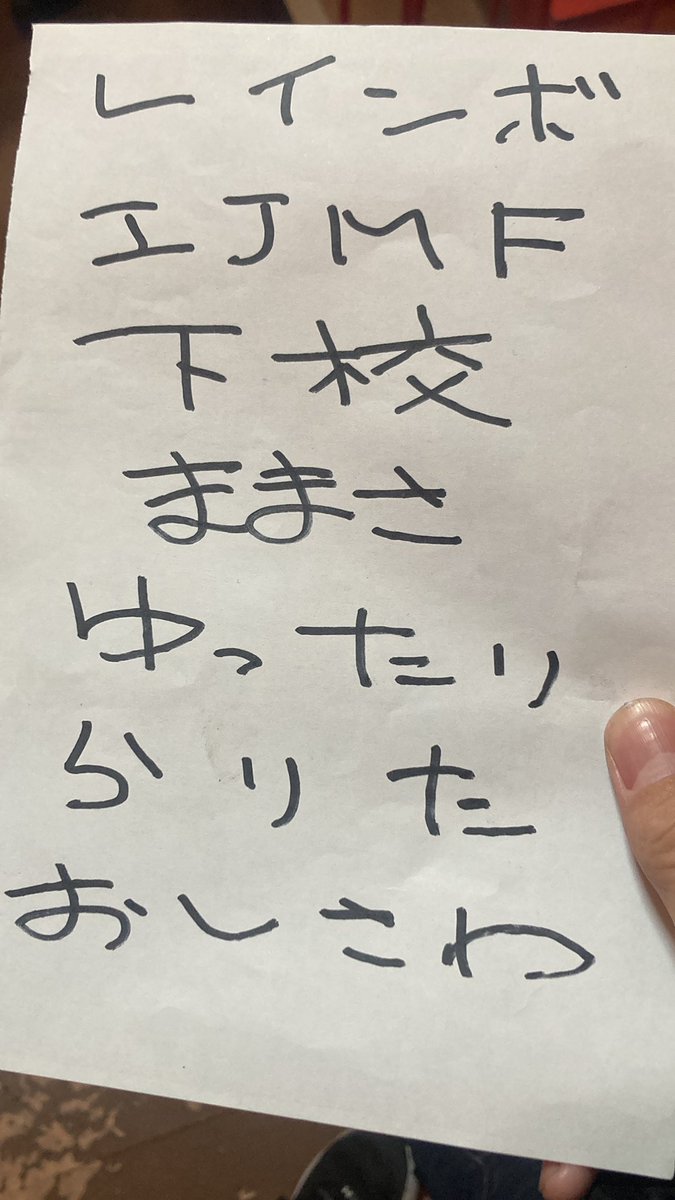 レインボ
エJMF
下校
ままさ
ゆったり
らりた
おしさわ